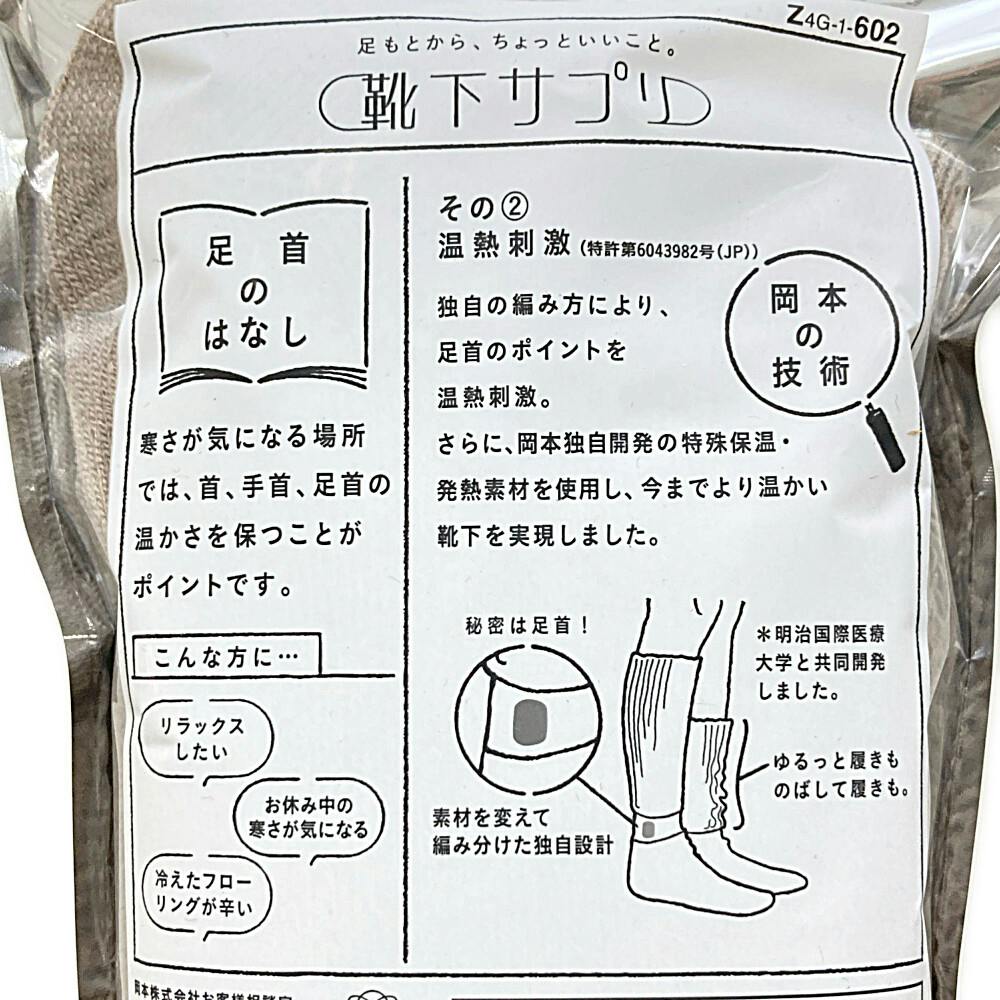 Z4G-1-602
足もとから、ちょっといいこと。
靴下サプリ
足首
の
はなし
寒さが気になる場所
では、首、手首、足首の
温かさを保つことが
ポイントです。
こんな方に…
リラックス
したい
お休み中の
寒さが気になる
冷えたフロー
リングが辛い
その②
温熱刺激(特許第6043982号(JP))
独自の編み方により、
足首のポイントを
温熱刺激。
さらに、岡本独自開発の特殊保温・
発熱素材を使用し、今までより温かい
靴下を実現しました。
岡本
の
技術
秘密は足首！
素材を変えて
編み分けた独自設計
＊明治国際医療
大学と共同開発
しました。
ゆるっと履きも
のばして履きも。
岡本株式会社お客様相談室